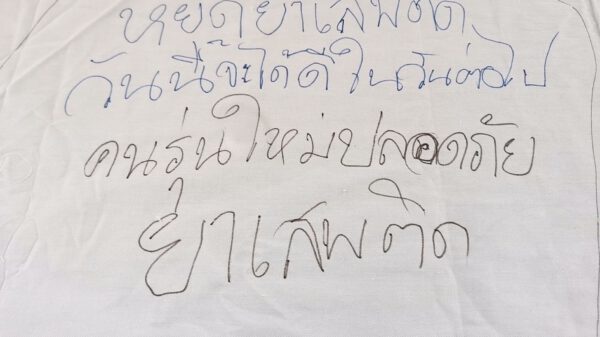 หยุดยาเสพติด
วันนี้จะได้ดีในวันต่อไป
คนรุ่นใหม่ปลอดภัย
ย่าเสพติด